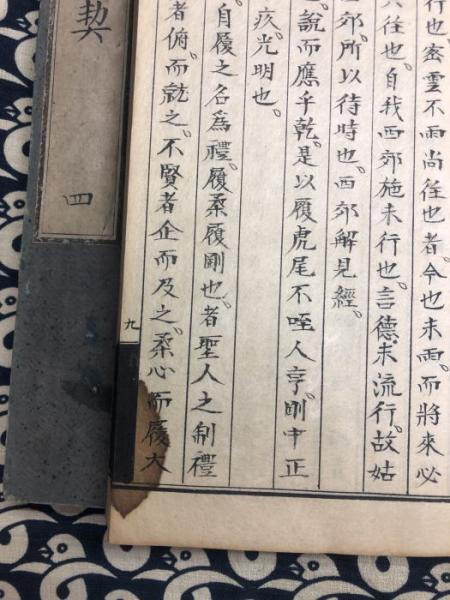 行也。密雲不雨尚徃也者。今也未雨。而將來必
徃也。自我西郊施未行也。言德未流行。故姑
西郊。所以待時也。西郊解見經。
說而應乎乾。是以履虎尾不咥人亨。剛中正
疚。光明也。
自履之名為禮。履柔履剛也。者聖人之制禮
者俯。而就之。不賢者企而及之。柔心而履大
九
契
四